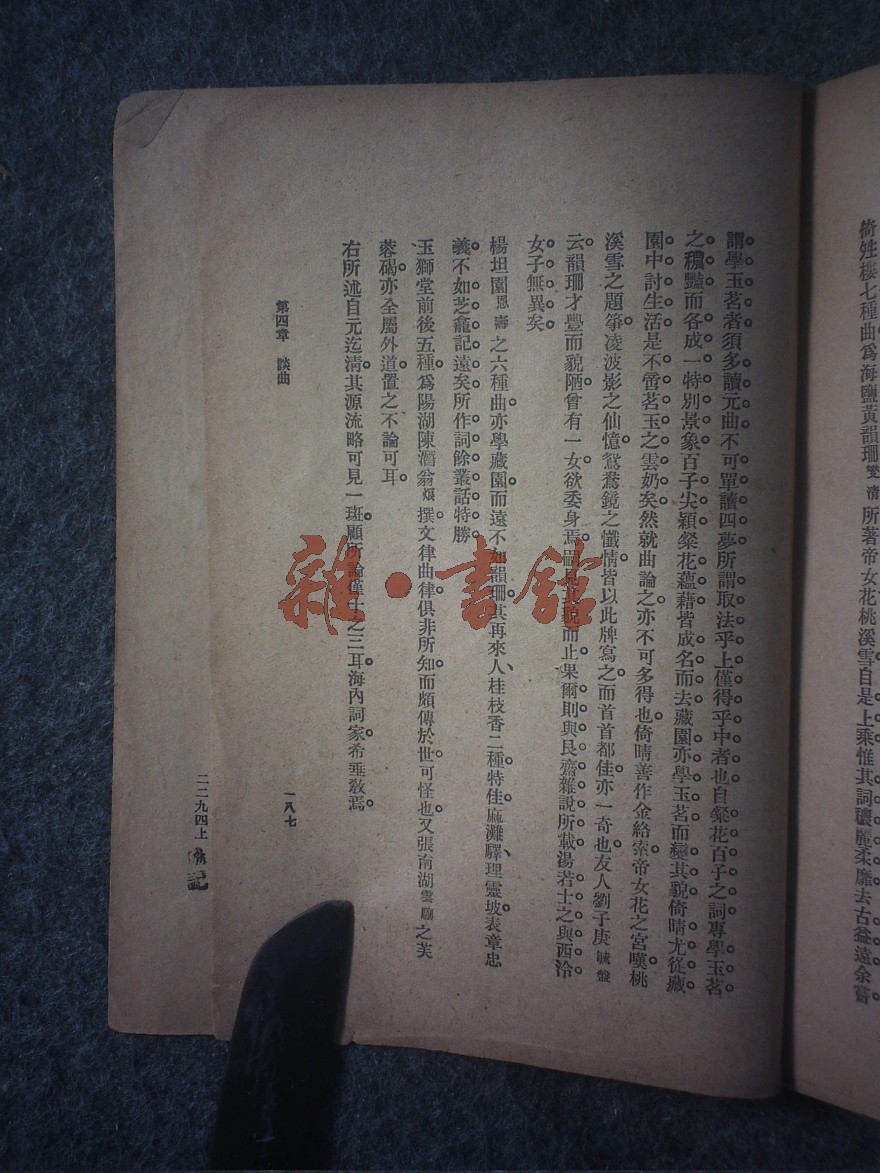 倚姓樓七種曲爲海鹽黃韻珊燮清所著帝女花桃溪雪自是上乘惟其詞穠麗柔靡去古益遠余嘗
謂學玉茗者須多讀元曲不可單讀四夢所謂取法乎上僅得乎中者也自粲花百子之詞專學玉茗
之穠豔而各成一特別景象百子尖穎粲花蘊藉皆成名而去藏園亦學玉茗而變其貌倚晴尤從藏
園中討生活是不啻茗玉之雲奶矣然就曲論之亦不可多得也倚晴善作金絡索帝女花之宮嘆桃
溪雪之題箏凌波影之仙憶鴛鴦鏡之懺情皆以此牌寫之而首首都佳亦一奇也友人劉子庚毓盤
云韻珊才豐而貌陋曾有一女欲委身焉嗣見其貌而止果爾則與艮齋雜說所載湯若士之與西泠
女子無異矣
楊坦園恩壽之六種曲亦學藏園而遠不如韻珊其再來人桂枝香二種特佳麻灘驛理靈坡表章忠
義不如芝龕記遠矣所作詞餘叢話特勝
玉獅堂前後五種爲陽湖陳潛翁烺撰文律曲律俱非所知而頗傳於世可怪也又張南湖雲驤之芙
蓉碣亦全屬外道置之不論可耳
右所述自元迄淸其源流略可見一斑顧所論僅十之三耳海內詞家希垂敎焉
第四章 談曲
一八七
二二九四上
記
雜·書館